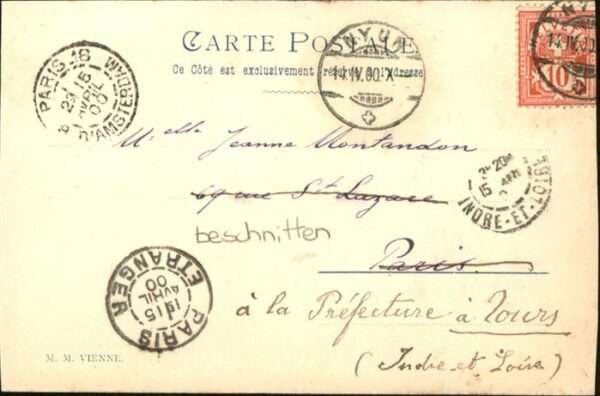 CARTE POSTALE
Ce Côté est exclusivement réservé à l'adresse
NYON
14.IV.00.X
NYON
14.IV.00
10
PARIS
15
AVRIL
00
D'AMSTERDAM
Mlle Jeanne Montandon
69 rue St Lazare
15
INDRE-ET-LOIRE
beschnitten
Paris
PARIS
15
AVRIL
00
ETRANGER
à la Préfecture à Tours
(Indre et Loire)
M. M. VIENNE.